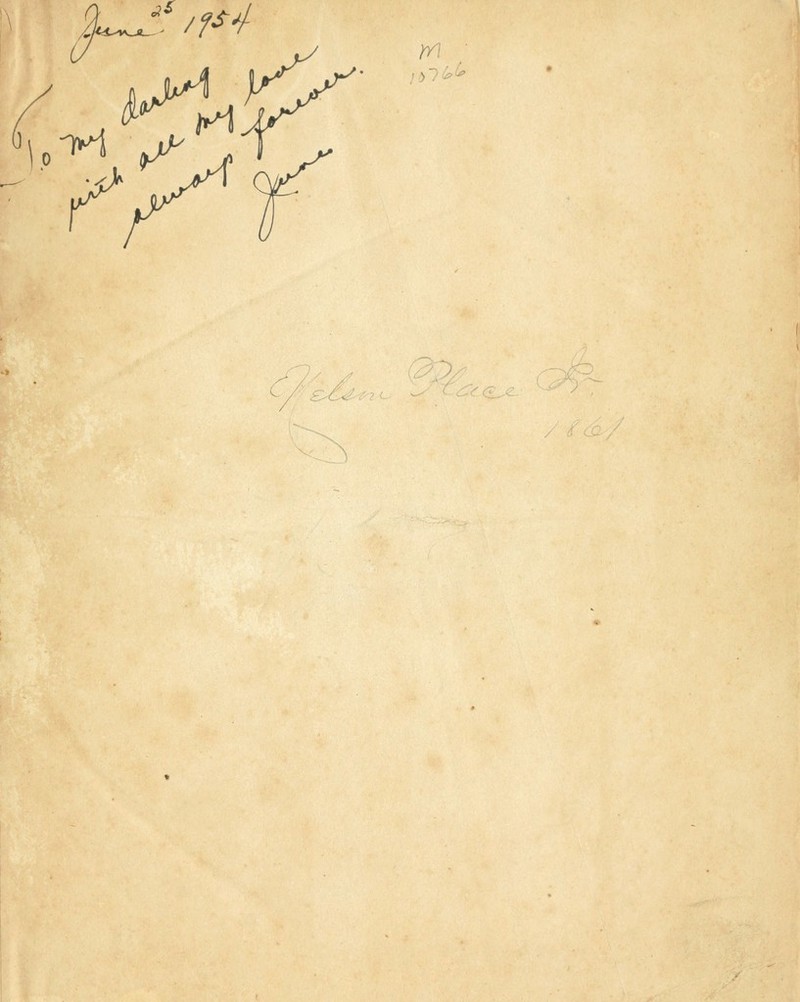 June 25 1954
To my darling
with all my love
always forever.
June
M
10766
Nelson Place Jr.
1861